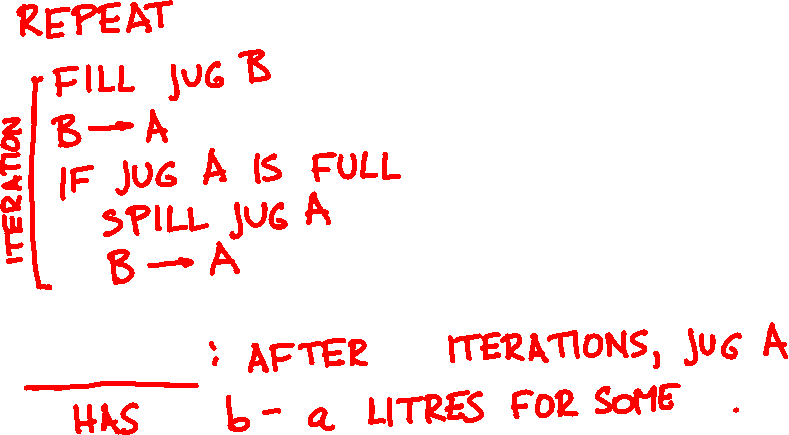 REPEAT
ITERATION
FILL JUG B
B → A
IF JUG A IS FULL
SPILL JUG A
B → A
: AFTER ITERATIONS, JUG A
HAS b - a LITRES FOR SOME .